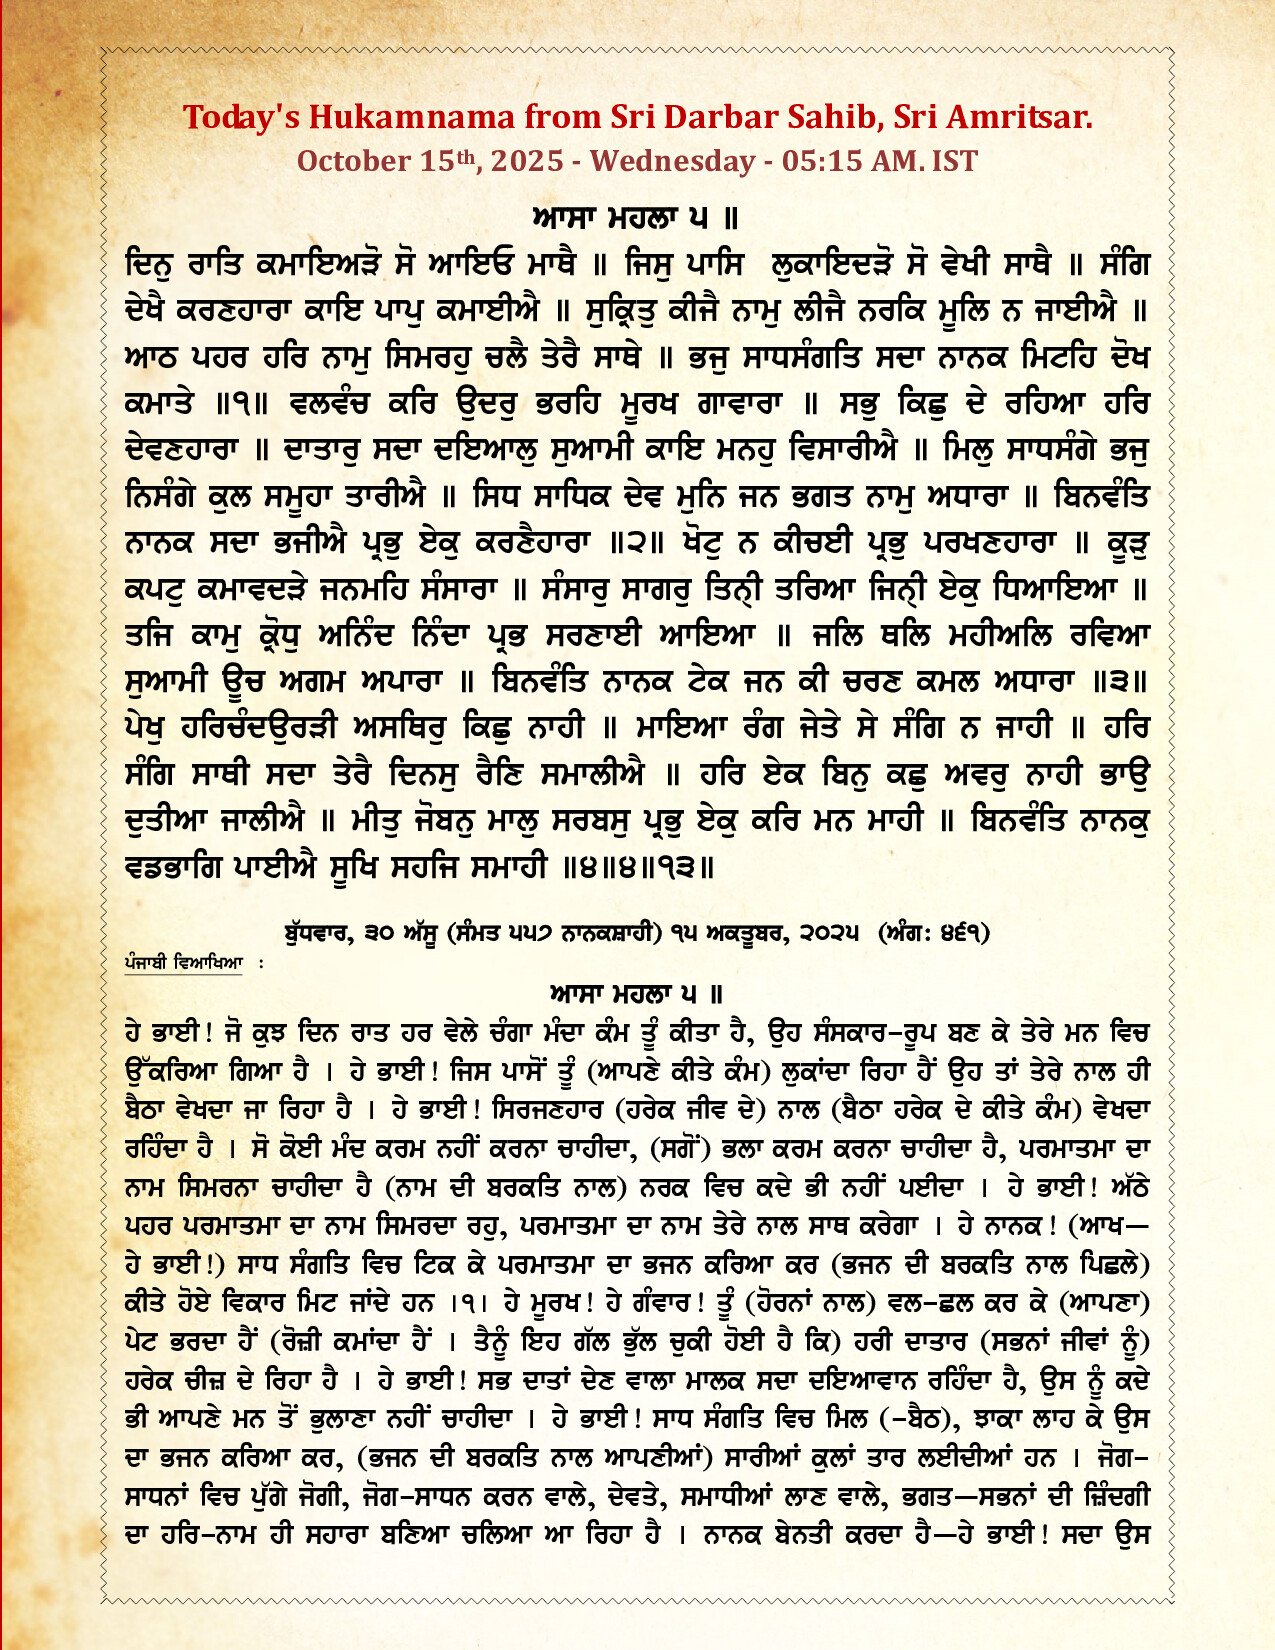 Today's Hukamnama from Sri Darbar Sahib, Sri Amritsar.
October 15th, 2025 - Wednesday - 05:15 AM. IST
ਆਸਾ ਮਹਲਾ ੫ ॥
ਦਿਨੁ ਰਾਤਿ ਕਮਾਇਅੜੋ ਸੋ ਆਇਓ ਮਾਥੈ ॥ ਜਿਸੁ ਪਾਸਿ ਲੁਕਾਇਦੜੋ ਸੋ ਵੇਖੀ ਸਾਥੈ ॥ ਸੰਗਿ
ਦੇਖੈ ਕਰਣਹਾਰਾ ਕਾਇ ਪਾਪੁ ਕਮਾਈਐ ॥ ਸੁਕ੍ਰਿਤੁ ਕੀਜੈ ਨਾਮੁ ਲੀਜੈ ਨਰਕਿ ਮੂਲਿ ਨ ਜਾਈਐ ॥
ਆਠ ਪਹਰ ਹਰਿ ਨਾਮੁ ਸਿਮਰਹੁ ਚਲੈ ਤੇਰੈ ਸਾਥੇ ॥ ਭਜੁ ਸਾਧਸੰਗਤਿ ਸਦਾ ਨਾਨਕ ਮਿਟਹਿ ਦੋਖ
ਕਮਾਤੇ ॥੧॥ ਵਲਵੰਚ ਕਰਿ ਉਦਰੁ ਭਰਹਿ ਮੂਰਖ ਗਾਵਾਰਾ ॥ ਸਭੁ ਕਿਛੁ ਦੇ ਰਹਿਆ ਹਰਿ
ਦੇਵਣਹਾਰਾ ॥ ਦਾਤਾਰੁ ਸਦਾ ਦਇਆਲੁ ਸੁਆਮੀ ਕਾਇ ਮਨਹੁ ਵਿਸਾਰੀਐ ॥ ਮਿਲੁ ਸਾਧਸੰਗੇ ਭਜੁ
ਨਿਸੰਗੇ ਕੁਲ ਸਮੂਹਾ ਤਾਰੀਐ ॥ ਸਿਧ ਸਾਧਿਕ ਦੇਵ ਮੁਨਿ ਜਨ ਭਗਤ ਨਾਮੁ ਅਧਾਰਾ ॥ ਬਿਨਵੰਤਿ
ਨਾਨਕ ਸਦਾ ਭਜੀਐ ਪ੍ਰਭੁ ਏਕੁ ਕਰਣੈਹਾਰਾ ॥੨॥ ਖੋਟੁ ਨ ਕੀਚਈ ਪ੍ਰਭੁ ਪਰਖਣਹਾਰਾ ॥ ਕੂੜੁ
ਕਪਟੁ ਕਮਾਵਦੜੇ ਜਨਮਹਿ ਸੰਸਾਰਾ ॥ ਸੰਸਾਰੁ ਸਾਗਰੁ ਤਿਨ੍ਹੀ ਤਰਿਆ ਜਿਨ੍ਹੀ ਏਕੁ ਧਿਆਇਆ ॥
ਤਜਿ ਕਾਮੁ ਕ੍ਰੋਧੁ ਅਨਿੰਦ ਨਿੰਦਾ ਪ੍ਰਭ ਸਰਣਾਈ ਆਇਆ ॥ ਜਲਿ ਥਲਿ ਮਹੀਅਲਿ ਰਵਿਆ
ਸੁਆਮੀ ਊਚ ਅਗਮ ਅਪਾਰਾ ॥ ਬਿਨਵੰਤਿ ਨਾਨਕ ਟੇਕ ਜਨ ਕੀ ਚਰਣ ਕਮਲ ਅਧਾਰਾ ॥੩॥
ਪੇਖੁ ਹਰਿਚੰਦਉਰੜੀ ਅਸਥਿਰੁ ਕਿਛੁ ਨਾਹੀ ॥ ਮਾਇਆ ਰੰਗ ਜੇਤੇ ਸੇ ਸੰਗਿ ਨ ਜਾਹੀ ॥ ਹਰਿ
ਸੰਗਿ ਸਾਥੀ ਸਦਾ ਤੇਰੈ ਦਿਨਸੁ ਰੈਣਿ ਸਮਾਲੀਐ ॥ ਹਰਿ ਏਕ ਬਿਨੁ ਕਛੁ ਅਵਰੁ ਨਾਹੀ ਭਾਉ
ਦੁਤੀਆ ਜਾਲੀਐ ॥ ਮੀਤੁ ਜੋਬਨੁ ਮਾਲੁ ਸਰਬਸੁ ਪ੍ਰਭੁ ਏਕੁ ਕਰਿ ਮਨ ਮਾਹੀ ॥ ਬਿਨਵੰਤਿ ਨਾਨਕੁ
ਵਡਭਾਗਿ ਪਾਈਐ ਸੂਖਿ ਸਹਜਿ ਸਮਾਹੀ ॥੪॥੪॥੧੩॥
ਬੁੱਧਵਾਰ, ੩੦ ਅੱਸੂ (ਸੰਮਤ ੫੫੭ ਨਾਨਕਸ਼ਾਹੀ) ੧੫ ਅਕਤੂਬਰ, ੨੦੨੫ (ਅੰਗ: ੪੬੧)
ਪੰਜਾਬੀ ਵਿਆਖਿਆ :
ਆਸਾ ਮਹਲਾ ੫ ॥
ਹੇ ਭਾਈ! ਜੋ ਕੁਝ ਦਿਨ ਰਾਤ ਹਰ ਵੇਲੇ ਚੰਗਾ ਮੰਦਾ ਕੰਮ ਤੂੰ ਕੀਤਾ ਹੈ, ਉਹ ਸੰਸਕਾਰ-ਰੂਪ ਬਣ ਕੇ ਤੇਰੇ ਮਨ ਵਿਚ
ਉੱਕਰਿਆ ਗਿਆ ਹੈ । ਹੇ ਭਾਈ! ਜਿਸ ਪਾਸੋਂ ਤੂੰ (ਆਪਣੇ ਕੀਤੇ ਕੰਮ) ਲੁਕਾਂਦਾ ਰਿਹਾ ਹੈਂ ਉਹ ਤਾਂ ਤੇਰੇ ਨਾਲ ਹੀ
ਬੈਠਾ ਵੇਖਦਾ ਜਾ ਰਿਹਾ ਹੈ । ਹੇ ਭਾਈ! ਸਿਰਜਣਹਾਰ (ਹਰੇਕ ਜੀਵ ਦੇ) ਨਾਲ (ਬੈਠਾ ਹਰੇਕ ਦੇ ਕੀਤੇ ਕੰਮ) ਵੇਖਦਾ
ਰਹਿੰਦਾ ਹੈ । ਸੋ ਕੋਈ ਮੰਦ ਕਰਮ ਨਹੀਂ ਕਰਨਾ ਚਾਹੀਦਾ, (ਸਗੋਂ) ਭਲਾ ਕਰਮ ਕਰਨਾ ਚਾਹੀਦਾ ਹੈ, ਪਰਮਾਤਮਾ ਦਾ
ਨਾਮ ਸਿਮਰਨਾ ਚਾਹੀਦਾ ਹੈ (ਨਾਮ ਦੀ ਬਰਕਤਿ ਨਾਲ) ਨਰਕ ਵਿਚ ਕਦੇ ਭੀ ਨਹੀਂ ਪਈਦਾ । ਹੇ ਭਾਈ! ਅੱਠੇ
ਪਹਰ ਪਰਮਾਤਮਾ ਦਾ ਨਾਮ ਸਿਮਰਦਾ ਰਹੁ, ਪਰਮਾਤਮਾ ਦਾ ਨਾਮ ਤੇਰੇ ਨਾਲ ਸਾਥ ਕਰੇਗਾ । ਹੇ ਨਾਨਕ! (ਆਖ—
ਹੇ ਭਾਈ!) ਸਾਧ ਸੰਗਤਿ ਵਿਚ ਟਿਕ ਕੇ ਪਰਮਾਤਮਾ ਦਾ ਭਜਨ ਕਰਿਆ ਕਰ (ਭਜਨ ਦੀ ਬਰਕਤਿ ਨਾਲ ਪਿਛਲੇ)
ਕੀਤੇ ਹੋਏ ਵਿਕਾਰ ਮਿਟ ਜਾਂਦੇ ਹਨ ।੧। ਹੇ ਮੂਰਖ! ਹੇ ਗੰਵਾਰ! ਤੂੰ (ਹੋਰਨਾਂ ਨਾਲ) ਵਲ-ਛਲ ਕਰ ਕੇ (ਆਪਣਾ)
ਪੇਟ ਭਰਦਾ ਹੈਂ (ਰੋਜ਼ੀ ਕਮਾਂਦਾ ਹੈਂ । ਤੈਨੂੰ ਇਹ ਗੱਲ ਭੁੱਲ ਚੁਕੀ ਹੋਈ ਹੈ ਕਿ) ਹਰੀ ਦਾਤਾਰ (ਸਭਨਾਂ ਜੀਵਾਂ ਨੂੰ)
ਹਰੇਕ ਚੀਜ਼ ਦੇ ਰਿਹਾ ਹੈ । ਹੇ ਭਾਈ! ਸਭ ਦਾਤਾਂ ਦੇਣ ਵਾਲਾ ਮਾਲਕ ਸਦਾ ਦਇਆਵਾਨ ਰਹਿੰਦਾ ਹੈ, ਉਸ ਨੂੰ ਕਦੇ
ਭੀ ਆਪਣੇ ਮਨ ਤੋਂ ਭੁਲਾਣਾ ਨਹੀਂ ਚਾਹੀਦਾ । ਹੇ ਭਾਈ! ਸਾਧ ਸੰਗਤਿ ਵਿਚ ਮਿਲ (-ਬੈਠ), ਝਾਕਾ ਲਾਹ ਕੇ ਉਸ
ਦਾ ਭਜਨ ਕਰਿਆ ਕਰ, (ਭਜਨ ਦੀ ਬਰਕਤਿ ਨਾਲ ਆਪਣੀਆਂ) ਸਾਰੀਆਂ ਕੁਲਾਂ ਤਾਰ ਲਈਦੀਆਂ ਹਨ । ਜੋਗ-
ਸਾਧਨਾਂ ਵਿਚ ਪੁੱਗੇ ਜੋਗੀ, ਜੋਗ-ਸਾਧਨ ਕਰਨ ਵਾਲੇ, ਦੇਵਤੇ, ਸਮਾਧੀਆਂ ਲਾਣ ਵਾਲੇ, ਭਗਤ—ਸਭਨਾਂ ਦੀ ਜ਼ਿੰਦਗੀ
ਦਾ ਹਰਿ-ਨਾਮ ਹੀ ਸਹਾਰਾ ਬਣਿਆ ਚਲਿਆ ਆ ਰਿਹਾ ਹੈ । ਨਾਨਕ ਬੇਨਤੀ ਕਰਦਾ ਹੈ—ਹੇ ਭਾਈ! ਸਦਾ ਉਸ